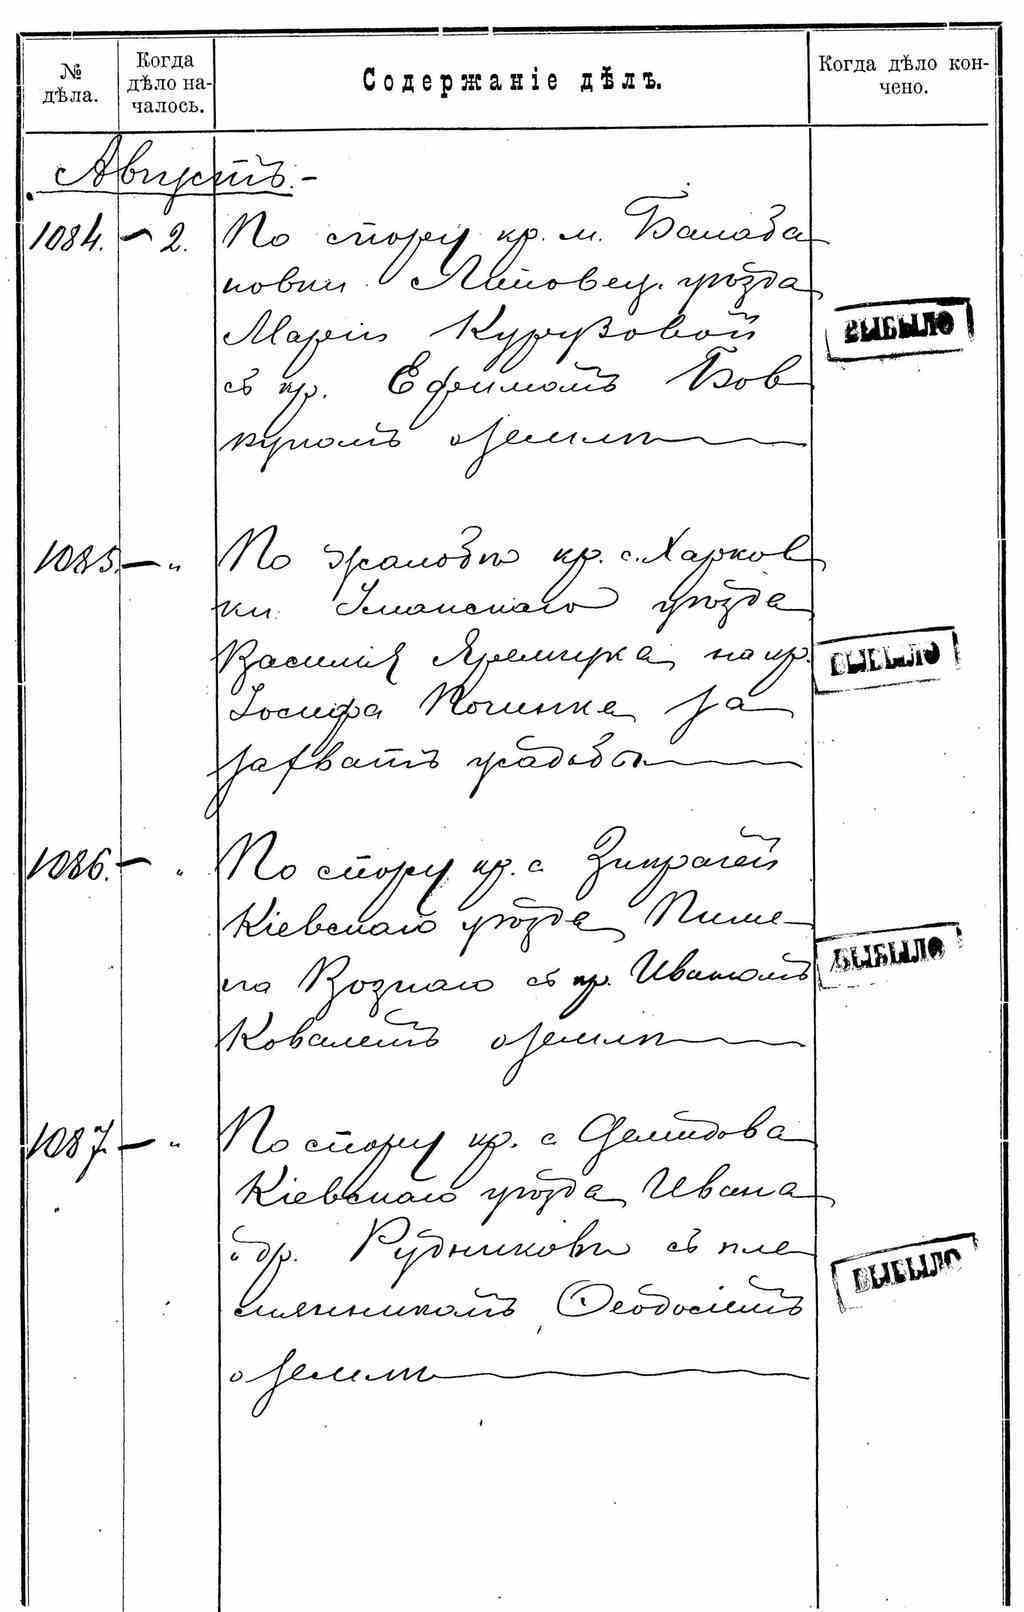 № дѣла.
Когда дѣло на-
чалось.
Содержаніе дѣлъ.
Когда дѣло кон-
чено.
Августъ.-
1084. - 2. По спору кр. м. Балаба
новки Липовец. уѣзда
Маріи
съ кр. Ефимомъ Бов
куномъ о землѣ
ВЫБЫЛО
1085. - " По жалобѣ кр. с. Харков
ки Уманскаго уѣзда
Василія Яремчука на кр.
Іосифа Починка за
захватъ усадьбы
ВЫБЫЛО
1086. - " По спору кр. с. Зикрачей
Кіевскаго уѣзда Пиме
на Вознаго съ кр. Иваномъ
Ковалемъ о землѣ
ВЫБЫЛО
1087. - " По спору кр. с. Демидова
Кіевскаго уѣзда Ивана
и др. Рудниковы съ пле
мянникомъ Ѳеодосіемъ
о землѣ
ВЫБЫЛО